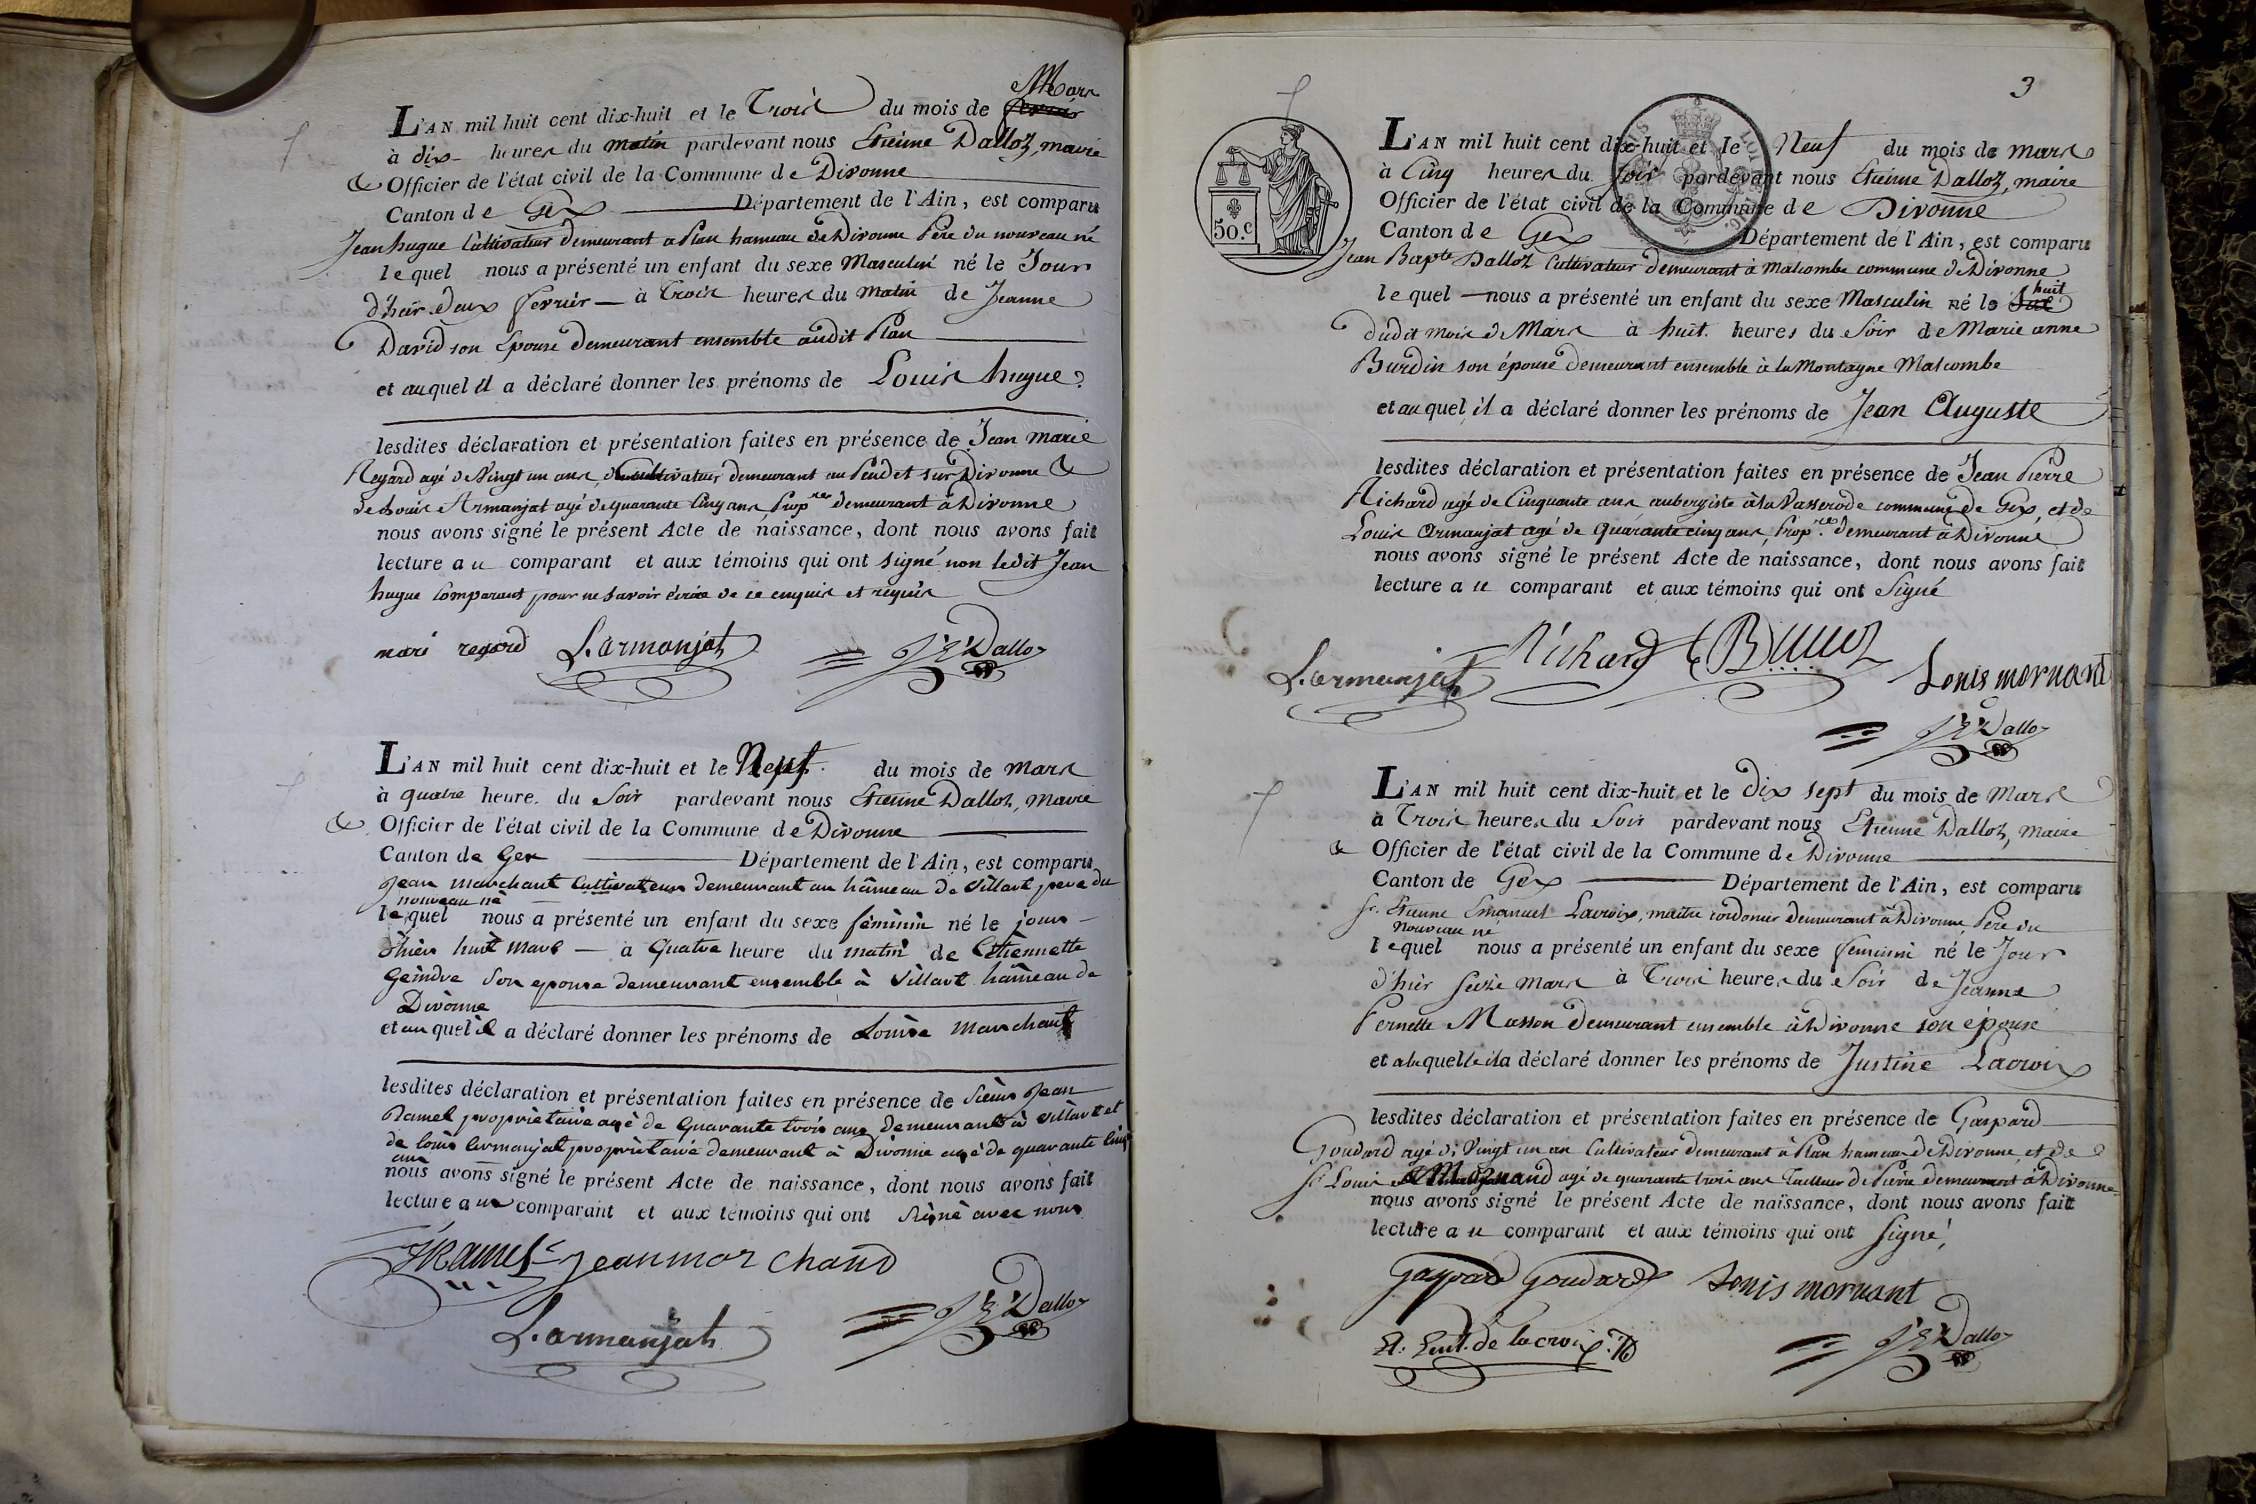 Mars
L'AN mil huit cent dix-huit et le Trois du mois de
à dix heures du matin pardevant nous Etienne Dalloz, maire
& Officier de l'état civil de la Commune de Divonne
Canton de Gex Département de l'Ain, est comparu
Jean hugue Cultivateur demeurant a Plan hameau de Divonne Père du nouveau né
lequel nous a présenté un enfant du sexe Masculin né le Jour
d'hier deux fevrier à Trois heures du Matin de Jeanne
David son Epouse demeurant ensemble audit Plan
et auquel il a déclaré donner les prénoms de Louis hugue.
lesdites déclaration et présentation faites en présence de Jean Marie
Regard agé de Vingt un ans, Cultivateur demeurant au sur Divonne &
de Louis Armanjat agé de quarante Cinq ans, Propre demeurant à Divonne
nous avons signé le présent Acte de naissance, dont nous avons fait
lecture au comparant et aux témoins qui ont signé non ledit Jean
hugue Comparant pour ne savoir écrire de ce enquis et requis
mari regard L. armanjat Dalloz
L'AN mil huit cent dix-huit et le Neuf. du mois de mars
à quatre heure. du Soir pardevant nous Etienne Dalloz, Maire
& Officier de l'état civil de la Commune de Divonne
Canton de Gex Département de l'Ain, est comparu
Jean marchant Cultivateur demeurant au hameau de Villart pere du
nouveau né
lequel nous a présenté un enfant du sexe féminin né le jour
d'hier huit mars à Quatre heure du matin de Etiennette
Geindre Son epouse demeurant ensemble à Villart hameau de
Divonne
et auquel il a déclaré donner les prénoms de Louise Marchant
lesdites déclaration et présentation faites en présence de Sieur Jean
Ramel propriétaire agé de Quarante trois ans demeurant à Villart et
de louis Armanjat propriétaire demeurant à Divonne agé de quarante Cinq
ans
nous avons signé le présent Acte de naissance, dont nous avons fait
lecture au comparant et aux témoins qui ont Signé avec nous
Ramel jean mar chand
L. armanjat Dalloz
3
50.c
L'AN mil huit cent dix-huit et le Neuf du mois de mars
à Cinq heures du Soir pardevant nous Etienne Dalloz, maire
Officier de l'état civil de la Commune de Divonne
Canton de Gex Département de l'Ain, est comparu
Jean Bapte Dalloz Cultivateur demeurant à Malcombe commune de Divonne
huit
lequel nous a présenté un enfant du sexe Masculin né le
dudit mois de Mars à huit. heures du Soir de Marie anne
Burdin son épouse demeurant ensemble à la Montagne Malcombe
et auquel il a déclaré donner les prénoms de Jean Auguste
lesdites déclaration et présentation faites en présence de Jean Pierre
Richard agé de Cinquante ans aubergiste à la Vasserode commune de Gex, et de
Louis Armanjat agé de Quarante cinq ans, Propre. demeurant à Divonne
nous avons signé le présent Acte de naissance, dont nous avons fait
lecture au comparant et aux témoins qui ont Signé
L. armanjat Richard Louis mornant
Dalloz
L'AN mil huit cent dix-huit et le dix sept du mois de Mars
à Trois heures du Soir pardevant nous Etienne Dalloz, Maire
& Officier de l'état civil de la Commune de Divonne
Canton de Gex Département de l'Ain, est comparu
Sr. Etienne Emanuel Lacroix, maitre cordonier demeurant à Divonne, Père du
nouveau né
lequel nous a présenté un enfant du sexe feminin né le Jour
d'hier Seize Mars à Trois heures du Soir de Jeanne
Pernette Masson demeurant ensemble à Divonne son épouse
et alaquelle ila déclaré donner les prénoms de Justine Lacroix
lesdites déclaration et présentation faites en présence de Gaspard
Goudard agé de Vingt un an Cultivateur demeurant à Plan hameau de Divonne, et de
Sr Louis agé de quarante trois ans Tailleur de Pierre demeurant à Divonne
nous avons signé le présent Acte de naissance, dont nous avons fait
lecture au comparant et aux témoins qui ont Signé
Gaspard Goudard Louis mornant
de lacroix Dalloz